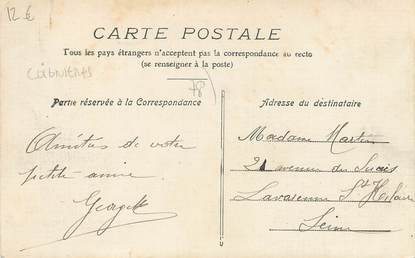 12 €
CARTE POSTALE
Tous les pays étrangers n'acceptent pas la correspondance au recto
(se renseigner à la poste)
78
Partie réservée à la Correspondance
Amitiés de votre
petite amie
Georgette
Adresse du destinataire
Madame Martin
2 avenue du
Lavarenne St Hilaire
Seine